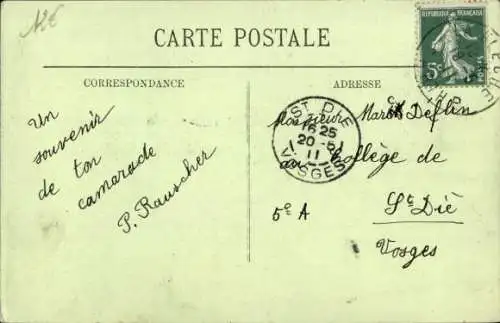 A2€
CARTE POSTALE
RÉPUBLIQUE FRANÇAISE
5c
POSTES
CORRESPONDANCE
ADRESSE
Un
souvenir
de ton
camarade
P. Rauscher
ST DIÉ
16 25
20 -5
11
VOSGES
Monsieur Deflin
au Collège de
5e A
St Dié
Vosges